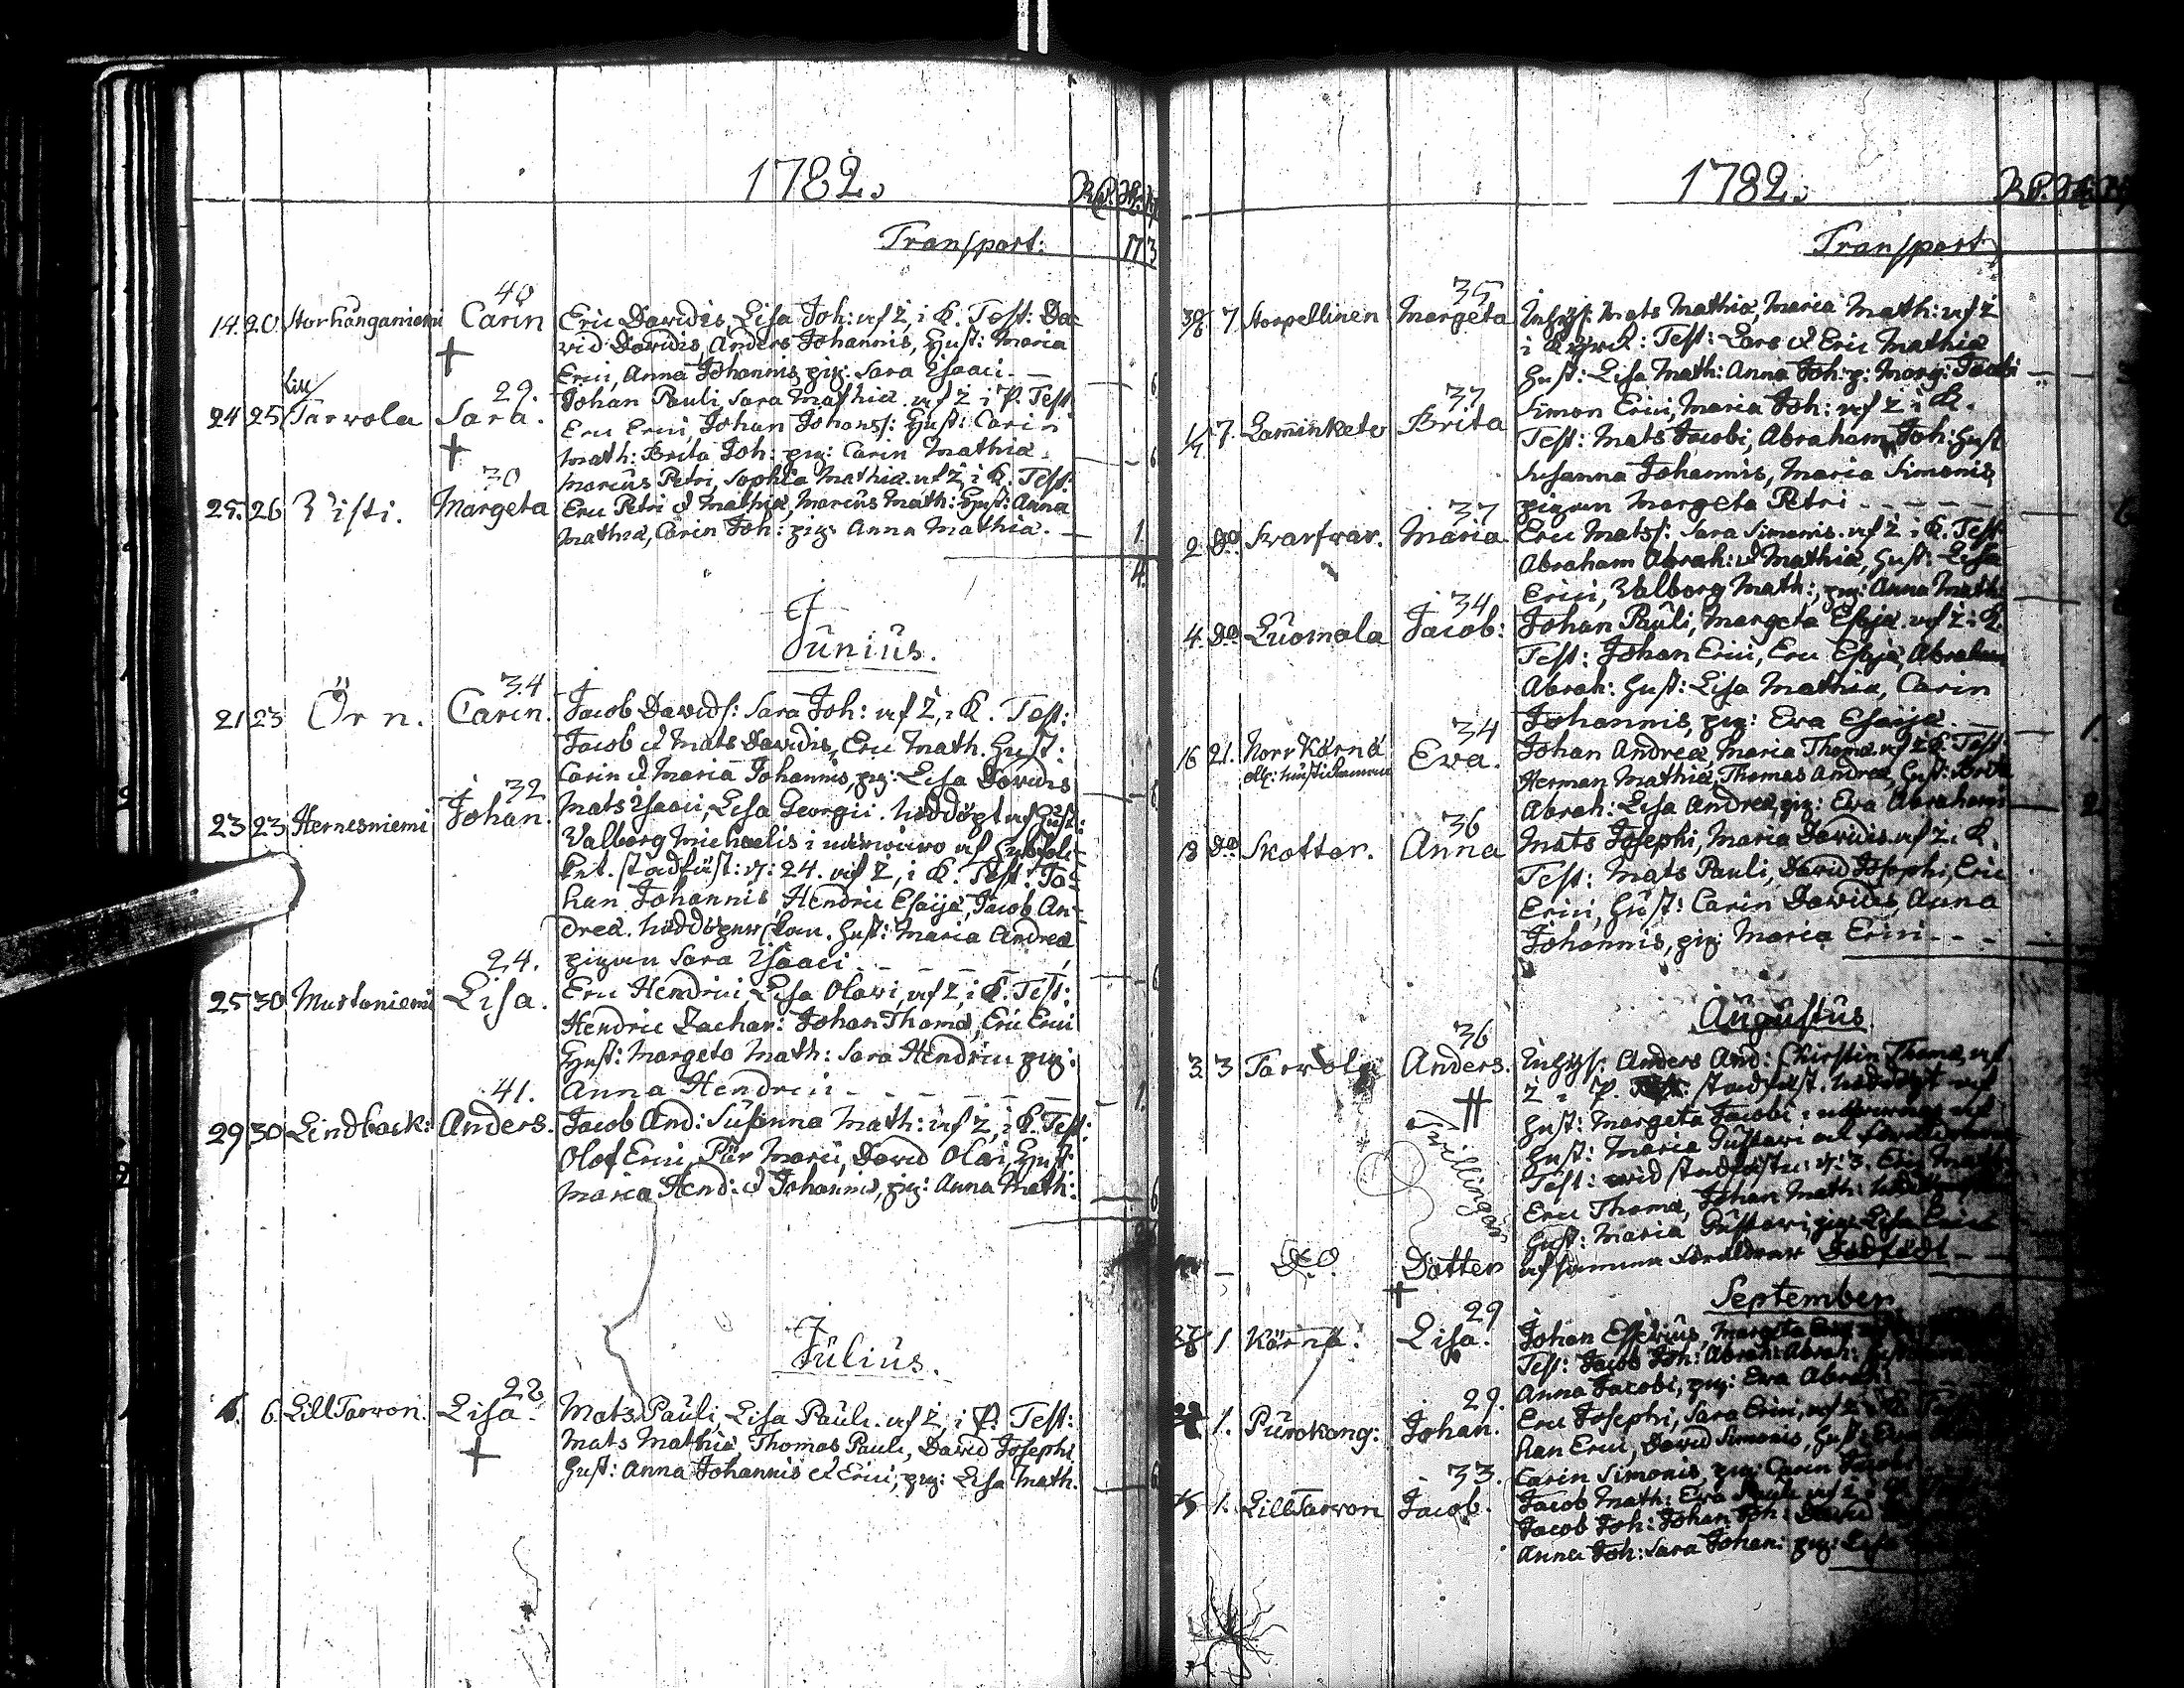 1782.
Transport: 173
40
14. 20. Storhånganiemi Carin Eric Davidis, Lisa Joh: af Z, i K. Test: Da-
vid Davidis, Anders Johannis, Hust: Maria
Erici, Anna Johannis, pig: Sara Isaaci. — 6
29.
24 25 Tarvola Sara. Johan Pauli, Sara Mathiæ af Z i P. Test
Eric Erici, Johan Johanss: Hust: Carin
Math: Brita Joh: pig: Carin Mathiæ. — 6
30
25. 26 Risti. Margeta Marcus Petri, Sophia Mathiæ af Z, i K. Test:
Eric Petri et Mathiæ, Marcus Math: Hust: Anna
Mathiæ, Carin Joh: pig: Anna Mathiæ. — 1.
4.
Junius.
34
21 23 Örn. Carin. Jacob Davids: Sara Joh: af Z, i K. Test:
Jacob et Mats Davidis, Eric Math. Hust:
Carin et Maria Johannis, pig: Lisa Davidis
32
23 23 Hernesniemi Johan. Mats Isaaci, Lisa Georgii. Nöddöpt af Hust:
Valborg Michaelis i
stadfäst: d: 24. af Z, i K. Test: Jo-
han Johannis, Hendric Esaiæ, Jacob An-
dreæ. Hust: Maria Andreæ
pigan Sara Isaaci — 6
24.
25 30 Mustaniemi Lisa. Eric Hendrici, Lisa Olavi, af Z, i K. Test:
Hendric Zachar: Johan Thomæ, Eric Erici
Hust: Margeta Math: Sara Hendrici pig:
Anna Hendrici — 1.
41.
29 30 Lindback: Anders. Jacob And: Susanna Math: af Z, i K. Test:
Olof Erici, Pär Marci, David Olai, Hust:
Maria Hend: et Johannis, pig: Anna Math: — 6
Julius.
28
6. Lill Tarvon. Lisa. Mats Pauli, Lisa Pauli af Z, i P. Test:
Mats Mathiæ, Thomas Pauli, David Josephi
Hust: Anna Johannis et Erici, pig: Lisa Math. — 6
1782.
Transport
35
30/6 7 Storpellinen Margeta Inhys: Mats Mathiæ, Maria Math: af Z
i Kyrck: Test: Lars et Eric Mathiæ
Hust: Lisa Math: Anna Joh: p: Marg: Jacobi
37
1/7 7. Lamminketo Brita Simon Erici, Maria Joh: af Z i K.
Test: Mats Jacobi, Abraham Joh: Hust
Susanna Johannis, Maria Simonis,
pigan Margeta Petri
37
2 Do Svarfvar. Maria Eric Matss: Sara Simonis af Z i K. Test
Abraham Abrah: et Mathiæ, Hust: Lisa
Erici, Valborg Math:, pig: Anna Math:
34
4. Do Luomala Jacob: Johan Pauli, Margeta Esaiæ af Z i K.
Test: Johan Erici, Eric Esaiæ, Abraham
Abrah: Hust: Lisa Mathiæ, Carin
Johannis, pig: Eva Esaiæ — 1.
34
16 21. Norr Kärnä Eva. Johan Andreæ, Maria Thomæ af Z K. Test
Herman Mathiæ, Thomas Andreæ, Hust: Brita
Abrah: Lisa Andreæ, pig: Eva Abrahami — 2
36
18 Do Skottar. Anna Mats Josephi, Maria Davidis af Z i K.
Test: Mats Pauli, David Josephi, Eric
Erici, Hust: Carin Davidis, Anna
Johannis, pig: Maria Erici
Augustus
36
3. 3 Tarvola Anders. Inhys: Anders And: Kirstin Thomæ, af
Z i P. stadfäst. nöddöpt af
Hust: Margeta Jacobi
Hust: Maria Gustavi
Test: vid stadfästn: d: 3. Eric Math:
Eric Thomæ, Johan Math:
Hust: Maria Gustavi, pig: Lisa Erici
Tvillingar
Do Dotter af samma föräldrar Dödfödt
September
29
1 Kärnä. Lisa. Johan Esserus, Margeta
Test: Jacob Joh: Abrah: Abrah:
Anna Jacobi, pig: Eva Abrah:
29.
1. Purokang: Johan. Eric Josephi, Sara Erici, af Z i K.
han Erici, David Simonis, Hust:
Carin Simonis, pig: Carin Jacobi
33.
1. Lill Tarvon Jacob. Jacob Math: Eva Pauli af Z
Jacob Joh: Johan Joh: David
Anna Joh: Sara Johan: pig: Lisa